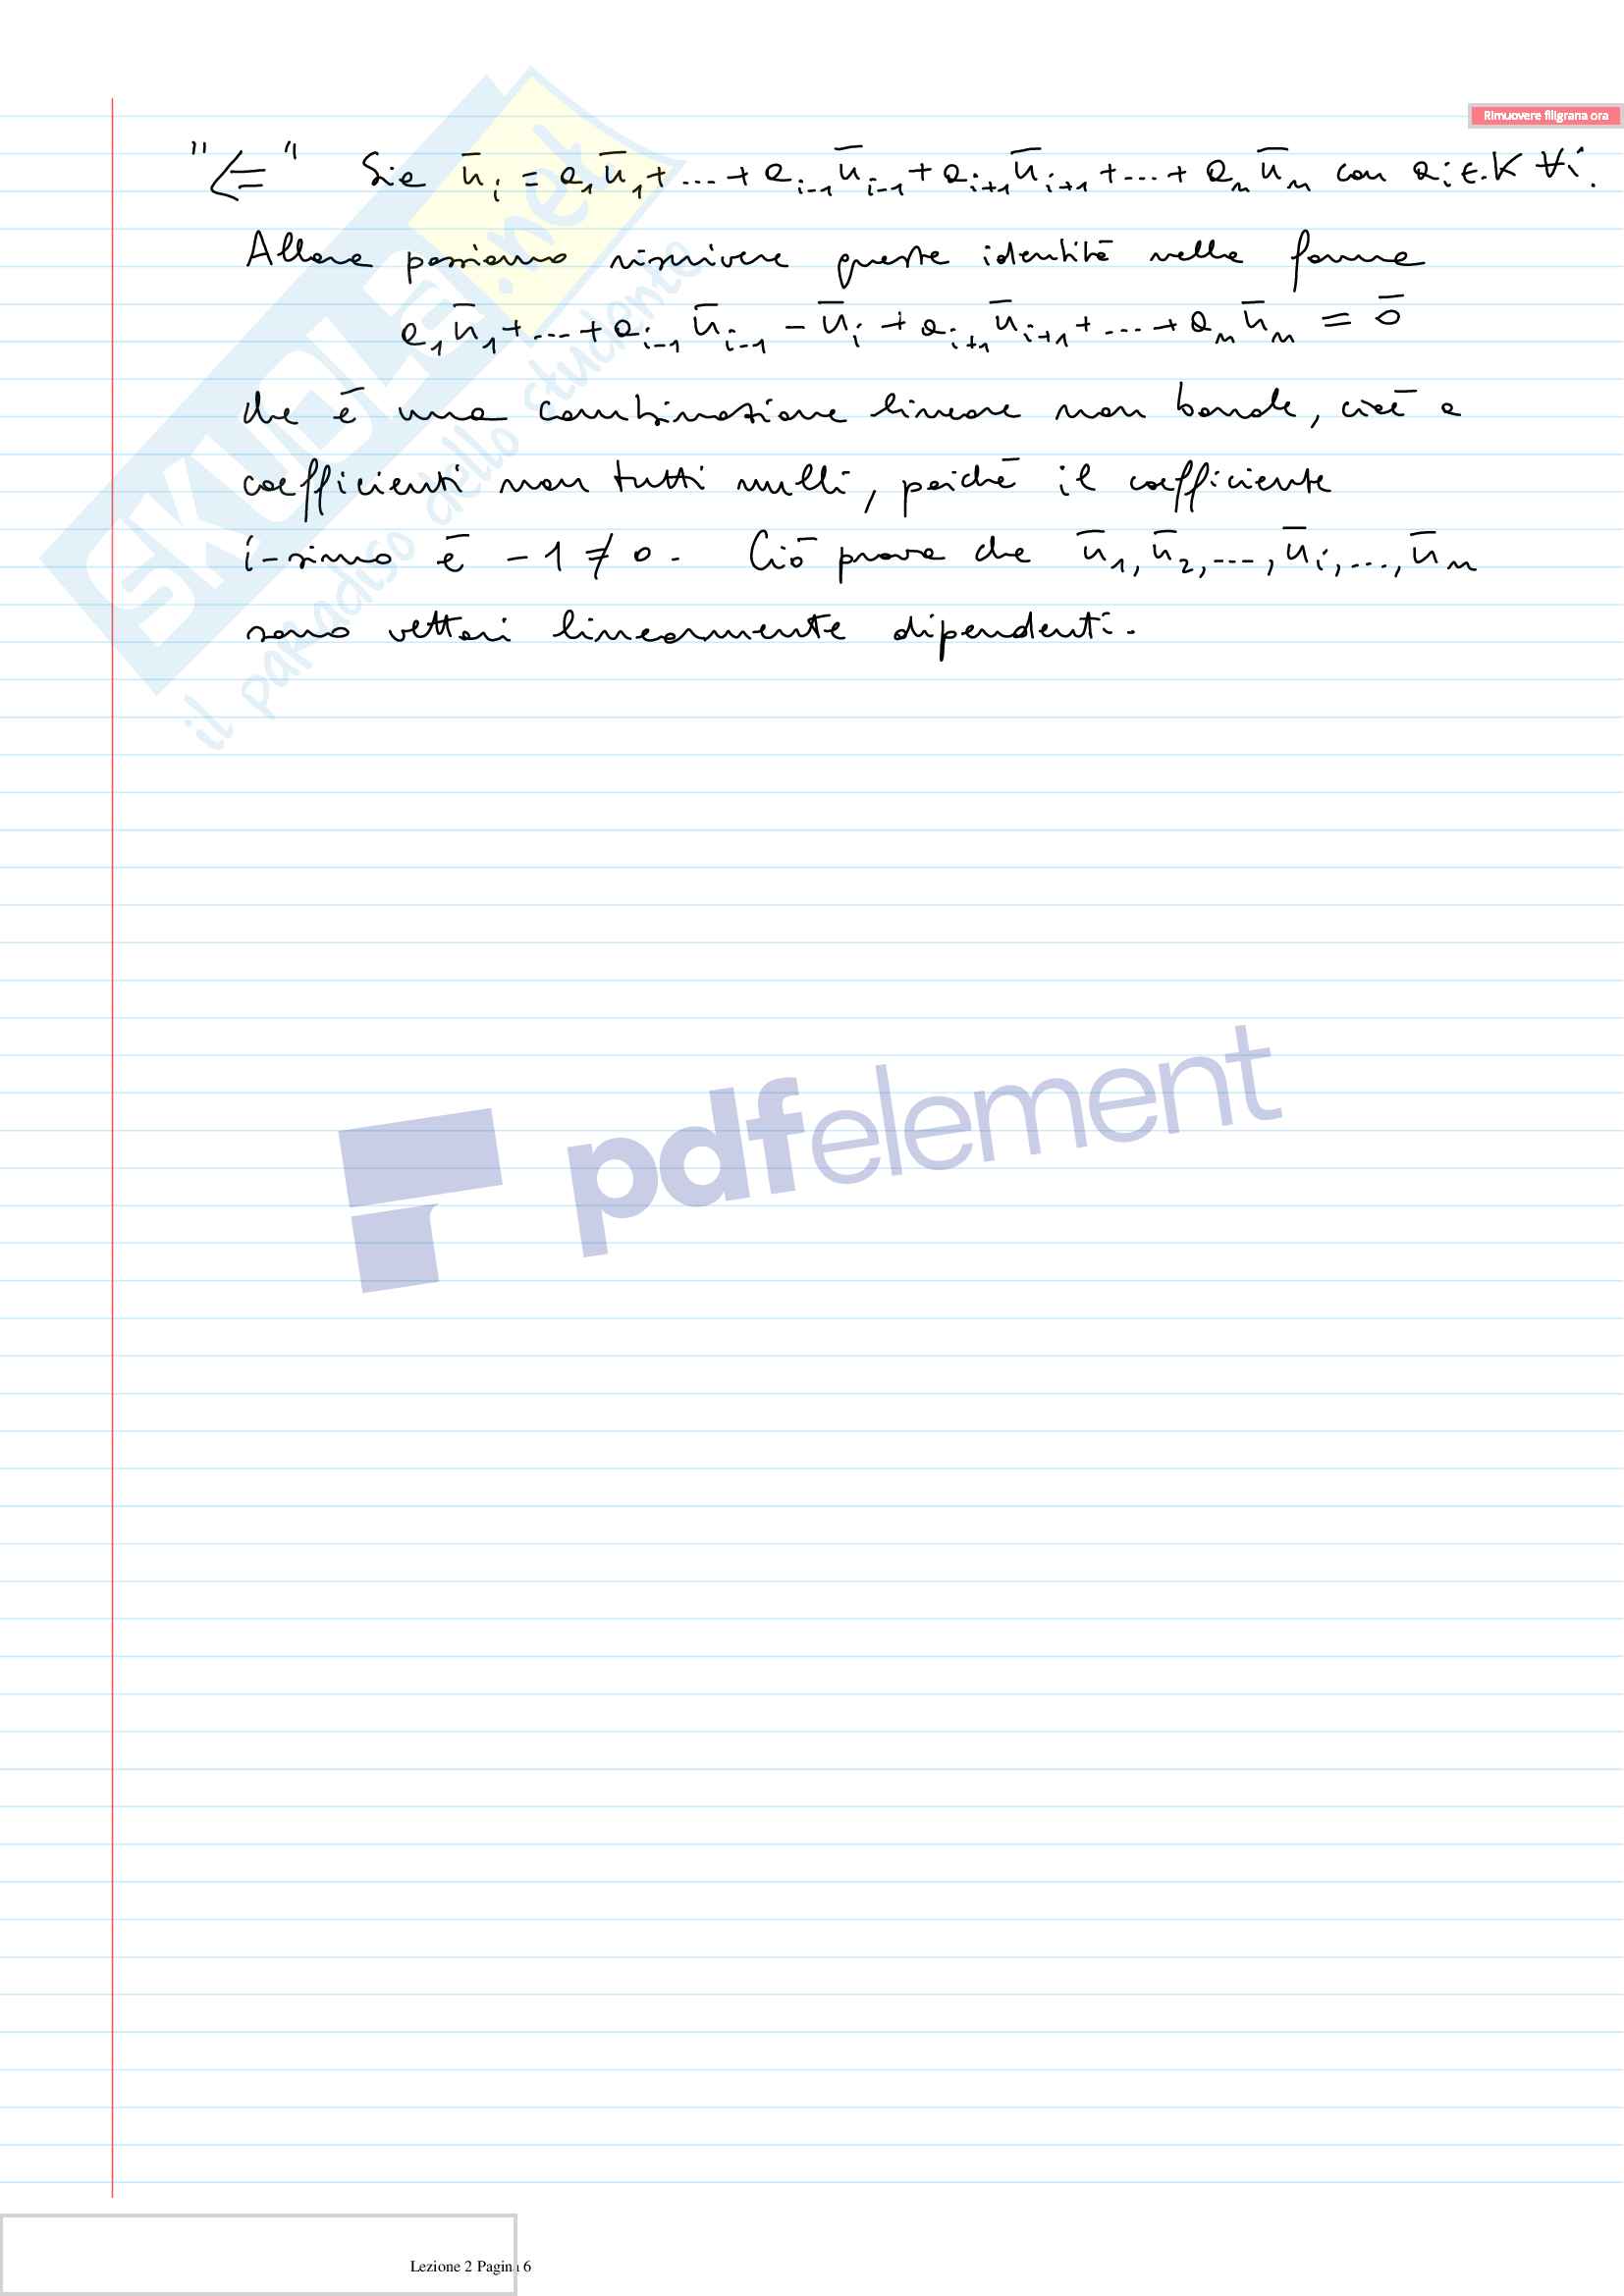 Rimuovere filigrana ora
"⇐" Sia ū_i = a_1 ū_1 + ... + a_{i-1} ū_{i-1} + a_{i+1} ū_{i+1} + ... + a_n ū_n con a_i ∈ K ∀i.
Allora possiamo riscrivere questa identità nella forma
a_1 ū_1 + ... + a_{i-1} ū_{i-1} - ū_i + a_{i+1} ū_{i+1} + ... + a_n ū_n = ō
che è una combinazione lineare non banale, cioè a
coefficienti non tutti nulli, poiché il coefficiente
i-simo è -1 ≠ 0. Ciò prova che ū_1, ū_2, ..., ū_i, ..., ū_n
sono vettori linearmente dipendenti.
SKUOLa.net
il paradiso dello studente
pdfelement
Lezione 2 Pagina 6